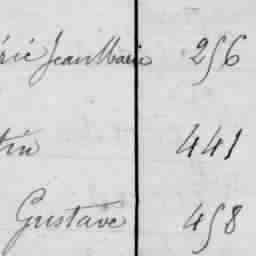 éric Jean Marie 256
tin 441
Gustave 458